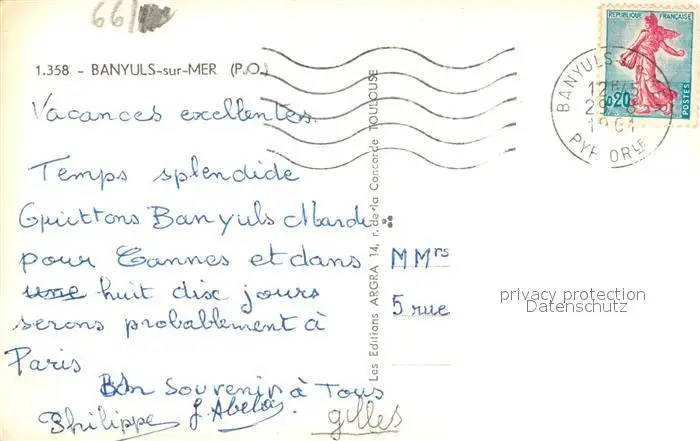 66/
1.358 - BANYULS-sur-MER (P.O.)
Vacances excellentes.
Temps splendide
Quittons Banyuls Mardi
pour Cannes et dans
une huit dix jours
serons probablement à
Paris
Bon Souvenir à Tous
Philippe J. Abelos
gilles
Les Editions ARGRA 14, r. de la Concorde TOULOUSE
MMrs
5 rue
privacy protection
Datenschutz
REPUBLIQUE FRANÇAISE
0,20
POSTES
BANYULS-S-
12H45
1961
PYR. ORLES